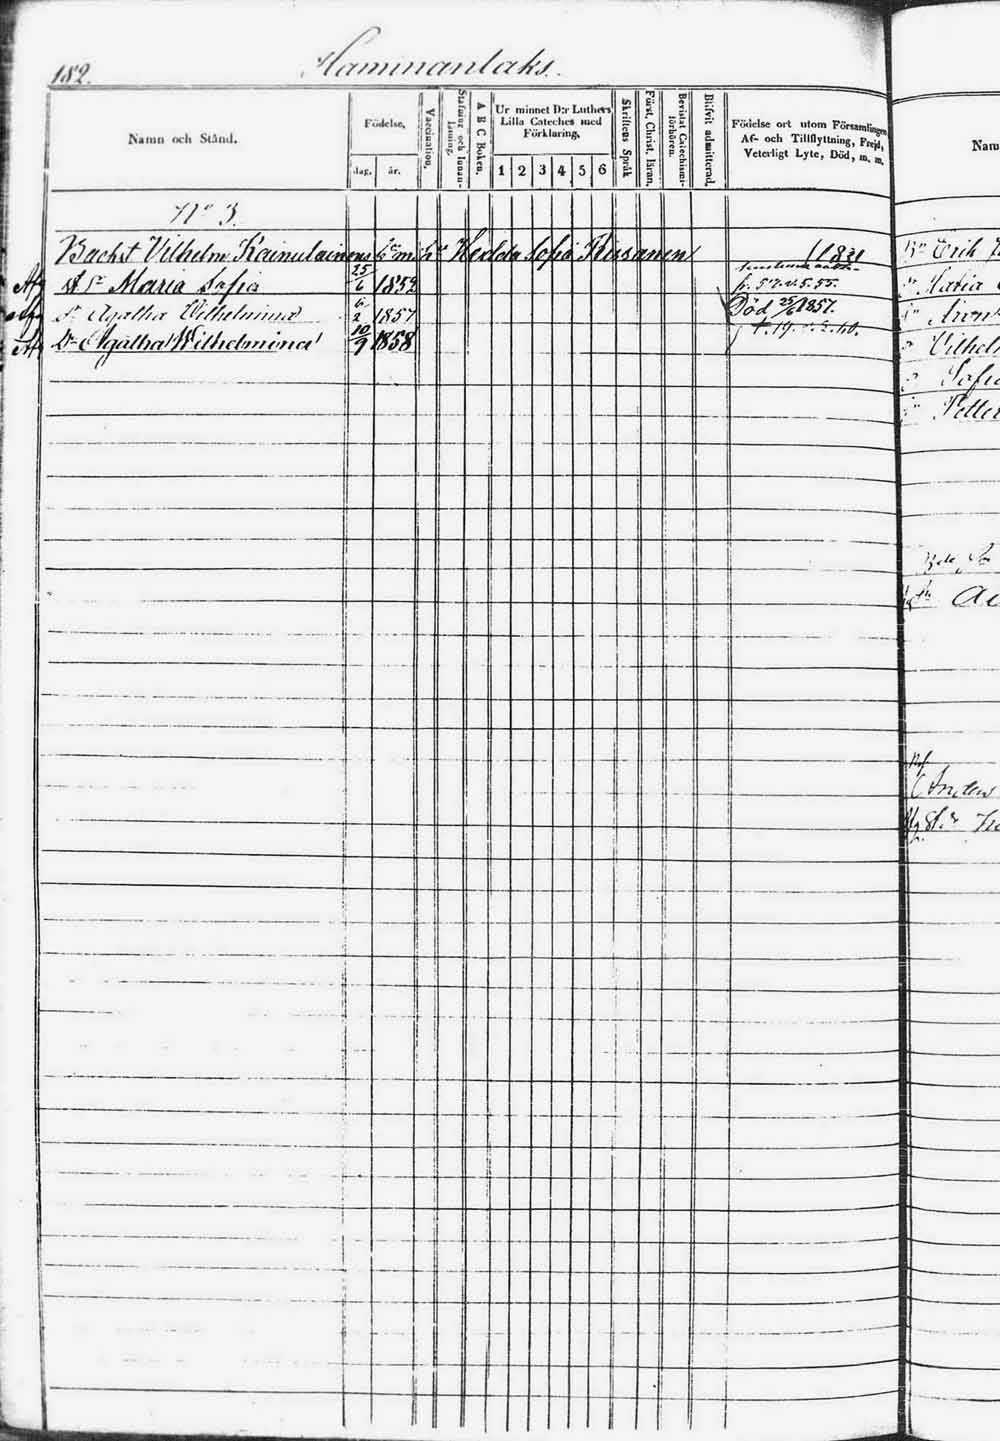 182.
Haminanlaks.
Namn och Stånd.
Födelse,
dag.
år.
Vaccination.
Stafning och Innan-läsning.
A B C Boken.
Ur minnet D:r Luthers
Lilla Cateches med
Förklaring,
1 2 3 4 5 6
Skriftens Språk
Först. Christ. läran.
Bevistat Catechismi-förhören.
Blifvit admitterad.
Födelse ort utom Församlingen,
Af- och Tillflyttning, Frejd,
Veterligt Lyte, Död, m. m.
Nam
No 3.
Bachst Vilhelm Kainulainens Sofia Rissanen
Maria Sofia 25/6 1852
Dr Agatha Wilhelmina 6/2 1857 Död 25/6 1857.
Dr Agatha Wilhelmina 10/9 1858
Erik
Maria
Vilhelm
Sofia
Petter